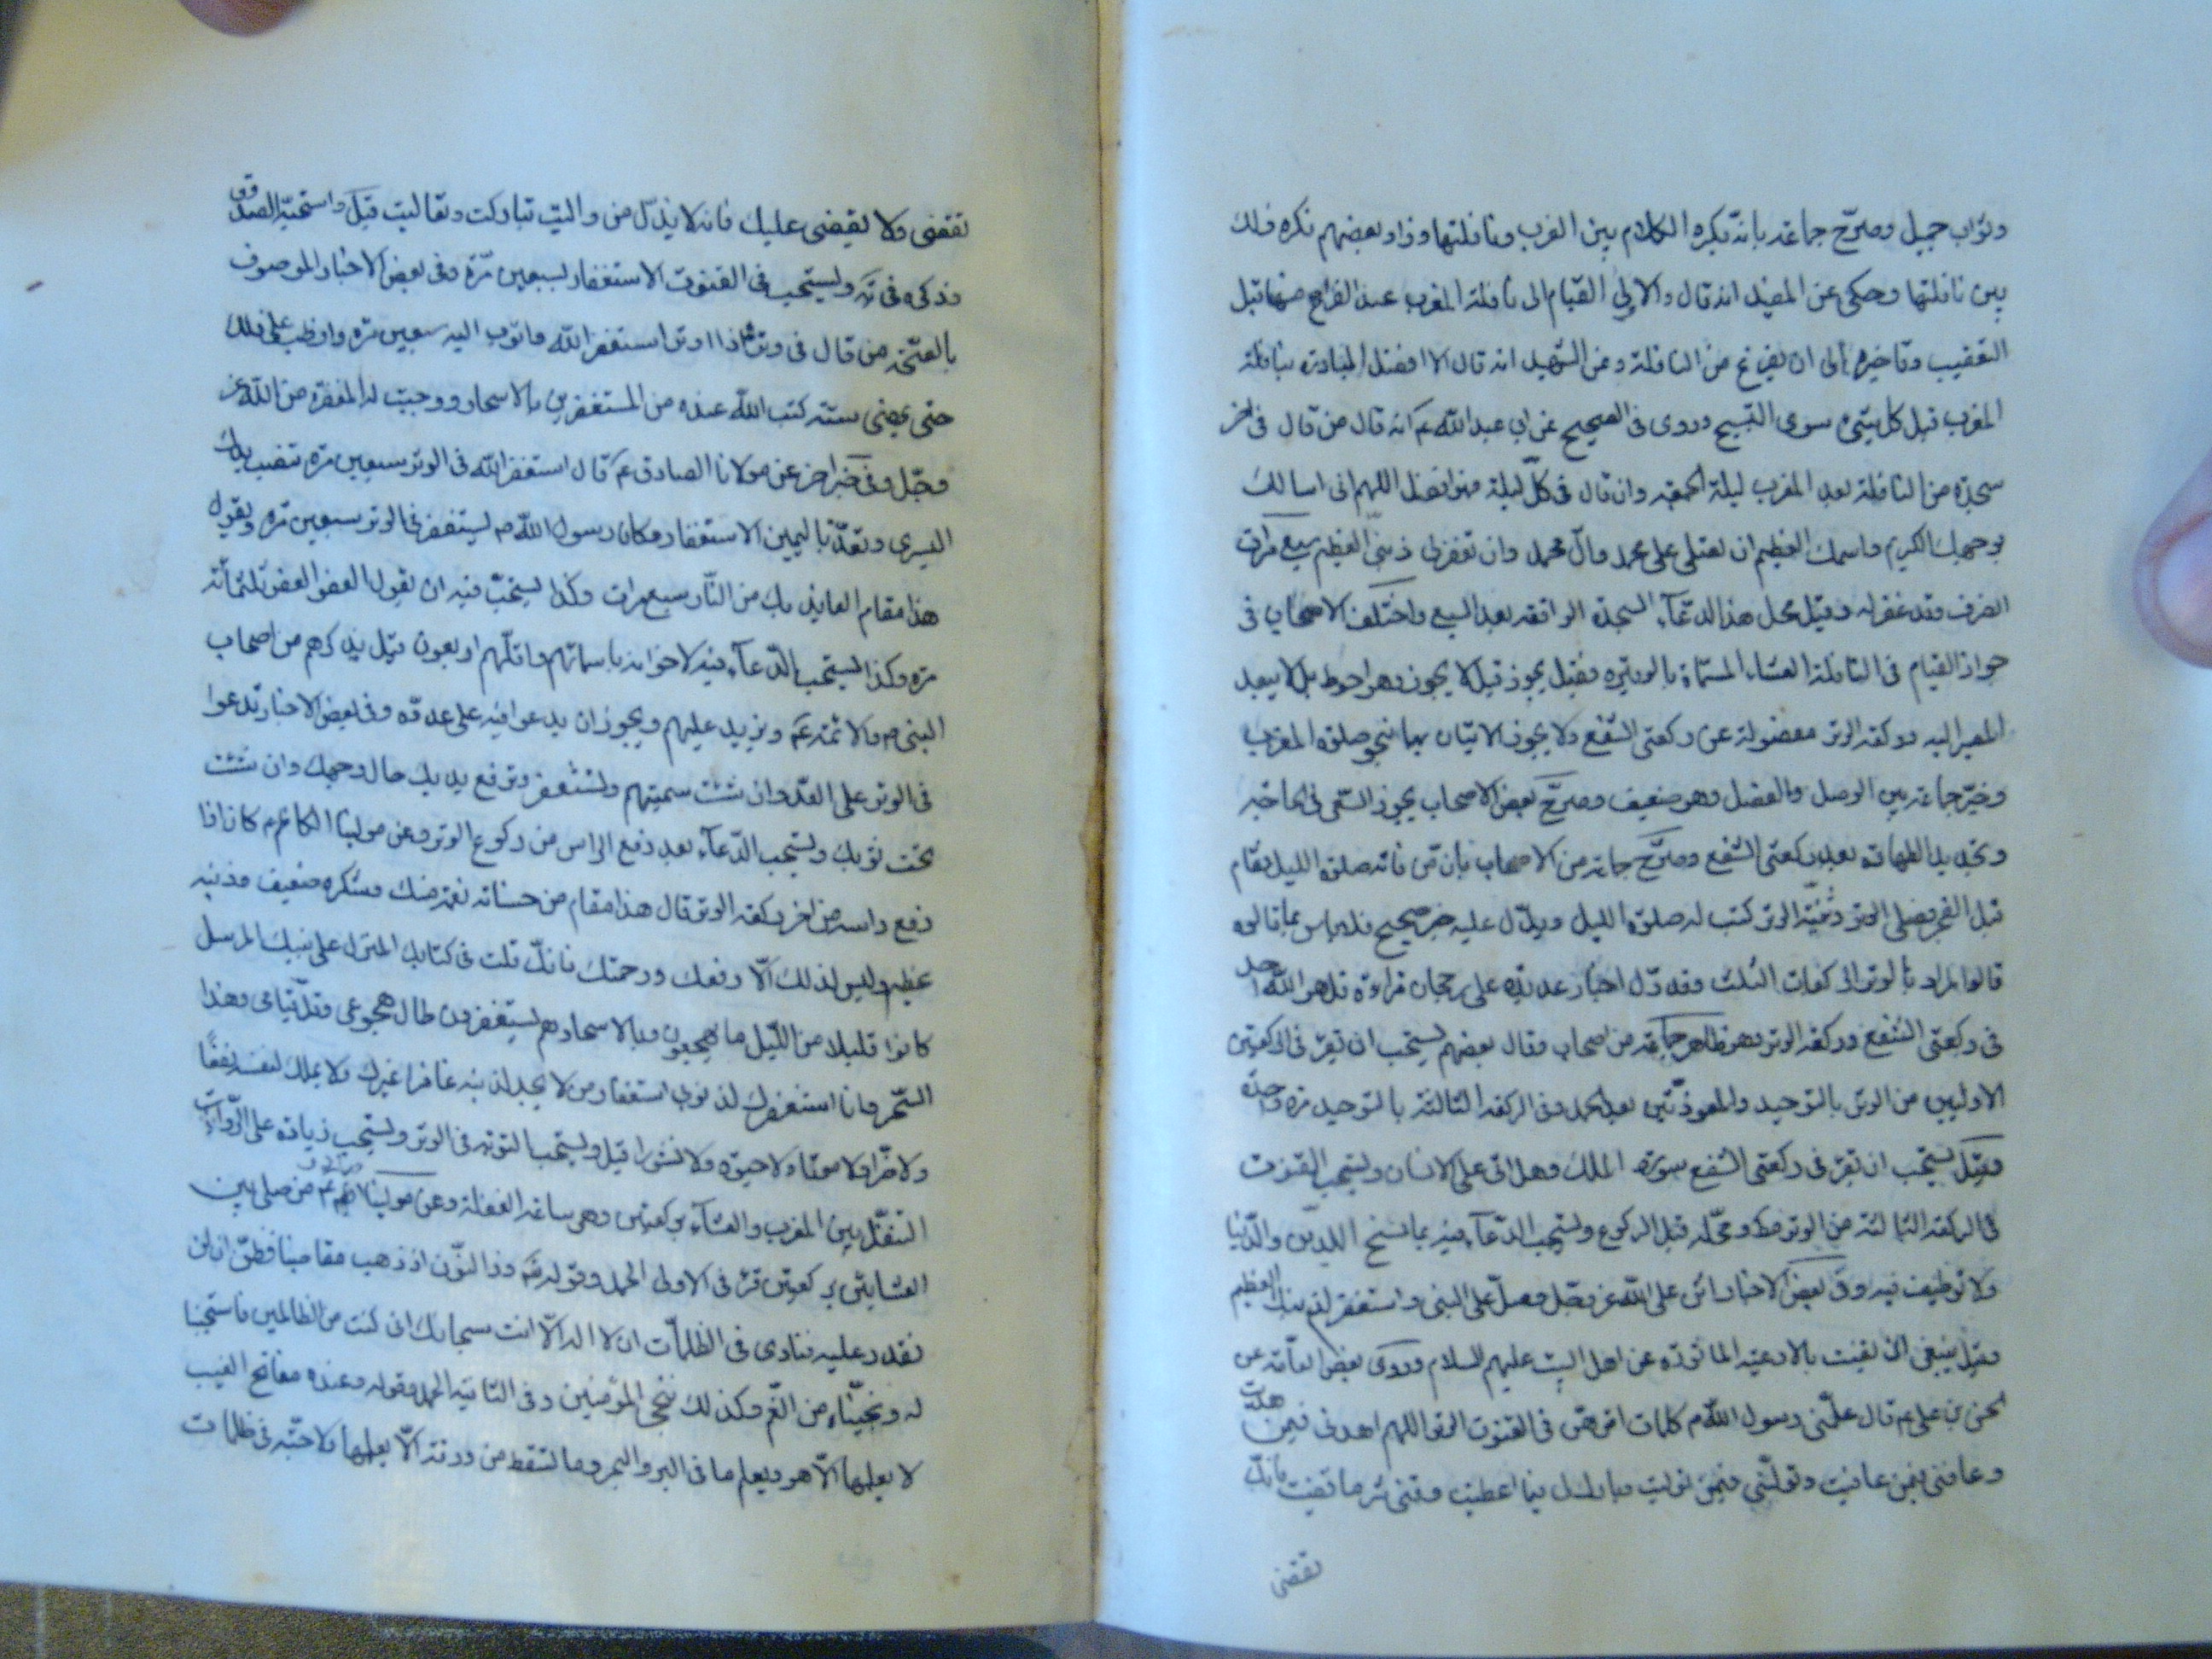 وثواب جميل وصرّح جماعة بانّه يكره الكلام بين المغرب ونافلتها وزاد بعضهم نكره ذلك
بين نافلتها وحكى عن المفيد انه قال والاولى القيام الى نافلة المغرب عند الفراغ منها قبل
التعقيب وتاخيره الى ان يفرغ من النافلة وعن الشهيد انه قال الافضل المبادرة بنافلة
المغرب قبل كل شيء سوى التسبيح وروى في الصحيح عن ابي عبد الله ع انه قال من قال في اخر
سجدة من النافلة بعد المغرب ليلة الجمعة وان قال في كلّ ليلة فهو افضل اللهم انى اسالك
بوجهك الكريم واسمك العظيم ان تصلى على محمد وآل محمد وان تغفر لي ذنبي العظيم سبع مرات
انصرف وقد غفر له وقيل محل هذا الدعآء السجدة الواقعة بعد السبع واختلف الاصحاب في
جواز القيام في النافلة العشاء المسمّاة بالوتيرة فقيل يجوز وقيل لا يجوز وهو احوط بل لا يبعد
المصير اليه وركعة الوتر مفصولة عن ركعتى الشفع ولا يجوز الاتيان بها بنحو صلوة المغرب
وخيّر جماعة بين الوصل والفصل وهو ضعيف وصرّح بعض الاصحاب بجواز السّعى في الحاجة
وتجديد الطهارة بعد ركعتى الشفع وصرّح جماعة من الاصحاب بان من فاته صلوة الليل فقام
قبل الفجر فصلى الوتر وسنّة الوتر كتب له صلوة الليل ويدل عليه خبر صحيح فلا باس بما قالوه
قالوا المراد بالوتر الركعات الثلث وقد دلّ اخبار عديدة على رجحان قراءة قل هو الله احد
في ركعتى الشفع وركعة الوتر وهو ظاهر جماعة من اصحاب وقال بعضهم يستحب ان تقرء في الركعتين
الاوليين من الوتر بالتوحيد والمعوذتين بعد الحمد وفي الركعة الثالثة بالتوحيد مرة واحدة
وقيل يستحب ان تقرء في ركعتى الشفع سورة الملك وهل اتى على الانسان ويستحب القنوت
في الركعة الثالثة من الوتر فقط ومحلّه قبل الركوع ويستحب الدّعآء فيه بما يسنح للدين والدّنيا
ولا توظيف فيه وفي بعض الاخبار اثن على الله عز وجل وصلّ على النبي واستغفر لذنبك العظيم
وقيل ينبغي ان يقنت بالادعية الماثورة عن اهل البيت عليهم السلام وروى بعض العامّة عن
الحسن بن علي ع قال علّمني رسول الله ص كلمات اقولهنّ في القنوت الوتر اللهم اهدني فيمن هديت
وعافني فيمن عافيت وتولّني فيمن توليت وبارك لي فيما اعطيت وقني شر ما قضيت فانّك
تقضى
تقضى ولا يقضى عليك فانه لا يذلّ من واليت تباركت وتعاليت قيل واستحبّه الصدوق
وذكره في يه ويستحب في القنوت الاستغفار لسبعين مرّة وفي بعض الاخبار الموصوف
بالصّحة من قال في وتره اذا اوتر استغفر الله واتوب اليه سبعين مرة وواظب على ذلك
حتى يمضى سنة كتب الله عنده من المستغفرين بالاسحار ووجبت له المغفرة من الله عز
وجلّ وفي خبر اخر عن مولانا الصادق ع قال استغفر الله في الوتر سبعين مرة تنصب يدك
اليسرى وتعدّ باليمين الاستغفار وكان رسول الله ص يستغفر في الوتر سبعين مرة ويقول
هذا مقام العايذ بك من النّار سبع مرات وكذا يستحبّ فيه ان يقول العفو العفو ثلثمائة
مرة وكذا يستحب الدّعآء فيه لاخوانه باسمائهم واقلّهم اربعون قيل يذكرهم من اصحاب
النبي ص والائمة ع ويزيد عليهم ويجوز ان يدعوا فيه على عدوّه وفي بعض الاخبار تدعوا
في الوتر على العدو وان شئت سميتهم وتستغفر وترفع يديك حيال وجهك وان شئت
تحت ثوبك ويستحب الدّعآء بعد رفع الراس من ركوع الوتر وعن مولينا الكاظم ع كان اذا
رفع راسه من اخر ركعة الوتر قال هذا مقام من حسناته نعمة منك وشكره ضعيف وذنبه
عظيم وليس لذلك الّا رفقك ورحمتك فانّك قلت في كتابك المنزل على نبيك المرسل
كانوا قليلا من اللّيل ما يهجعون وبالاسحار هم يستغفرون طال هجوعى وقلّ قيامى وهذا
السّحر وانا استغفرك لذنوبى استغفار من لا يجد لذنبه غافرا غيرك ولا يملك لنفسه نفعًا
ولا ضرّا ولا موتًا ولا حيوة ولا نشورا قيل ويستحب التوبة في الوتر ويستحب زيادة على الرّواتب
التنفّل بين المغرب والعشآء بركعتين وهي ساعة الغفلة وعن مولينا الصادق ع من صلى بين
العشائين ركعتين قرء في الاولى الحمد وقوله تعالى وذا النّون اذ ذهب مغاضبا فظنّ ان لن
نقدر عليه فنادى في الظلمات ان لا اله الّا انت سبحانك انى كنت من الظالمين فاستجبنا
له ونجيّناه من الغّم وكذلك ننجى المؤمنين وفي الثانية الحمد وقوله وعنده مفاتح الغيب
لا يعلمها الّا هو ويعلم ما في البر والبحر وما تسقط من ورقة الّا يعلمها ولا حبّة في ظلمات